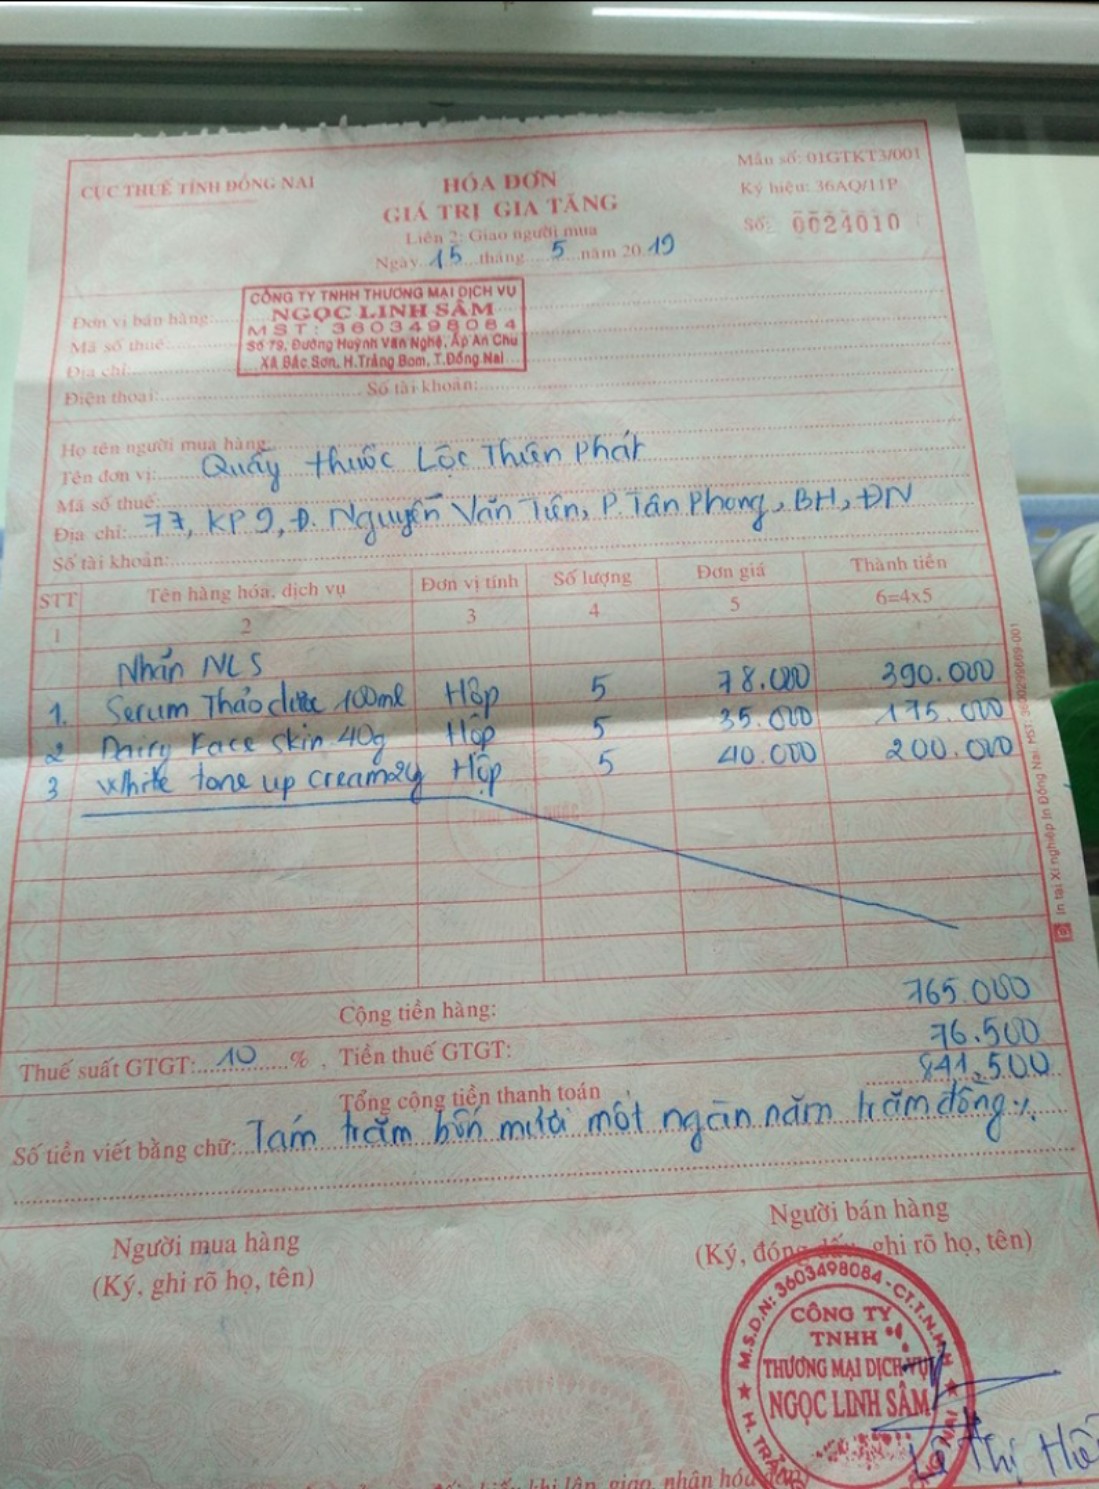 CỤC THUẾ TỈNH ĐỒNG NAI
HÓA ĐƠN
GIÁ TRỊ GIA TĂNG
Liên 2: Giao người mua
Ngày 15 tháng 5 năm 2019
Mẫu số: 01GTKT3/001
Ký hiệu: 36AQ/11P
Số: 0024010
Đơn vị bán hàng:
Mã số thuế:
Địa chỉ:
CÔNG TY TNHH THƯƠNG MẠI DỊCH VỤ
NGỌC LINH SÂM
MST: 3603498084
Số 79, Đường Huỳnh Văn Nghệ, Ấp An Chu
Xã Bắc Sơn, H.Trảng Bom, T.Đồng Nai
Điện thoại: Số tài khoản:
Họ tên người mua hàng:
Tên đơn vị: Quầy thuốc Lộc Thiên Phát
Mã số thuế:
Địa chỉ: 77, KP 9, Đ. Nguyễn Văn Tiên, P. Tân Phong, BH, ĐN
Số tài khoản:
STT Tên hàng hóa, dịch vụ Đơn vị tính Số lượng Đơn giá Thành tiền
1 2 3 4 5 6=4x5
Nhãn NLS
1. Serum Thảo dược 100ml Hộp 5 78.000 390.000
2 Dairy Face skin 40g Hộp 5 35.000 175.000
3 White tone up cream Hộp 5 40.000 200.000
Cộng tiền hàng: 765.000
Thuế suất GTGT: 10 %, Tiền thuế GTGT: 76.500
Tổng cộng tiền thanh toán 841.500
Số tiền viết bằng chữ: Tám trăm bốn mươi mốt ngàn năm trăm đồng
Người mua hàng
(Ký, ghi rõ họ, tên)
Người bán hàng
(Ký, đóng dấu, ghi rõ họ, tên)
M.S.D.N: 3603498084 - C.T.T.N.H.H
CÔNG TY
TNHH
THƯƠNG MẠI DỊCH VỤ
NGỌC LINH SÂM
Lê Thị
khi lập, giao, nhận hóa đơn)
In tại Xí nghiệp In Đồng Nai, MST: